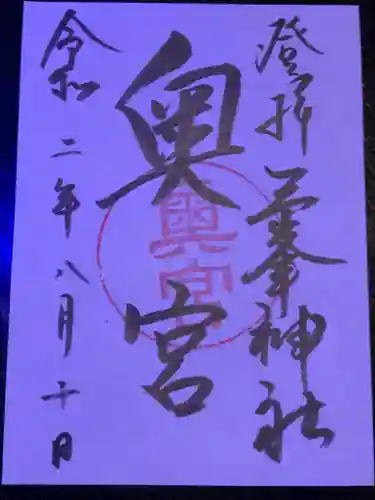 登拝 三峯神社
奥宮
奥宮
令和二年八月十日